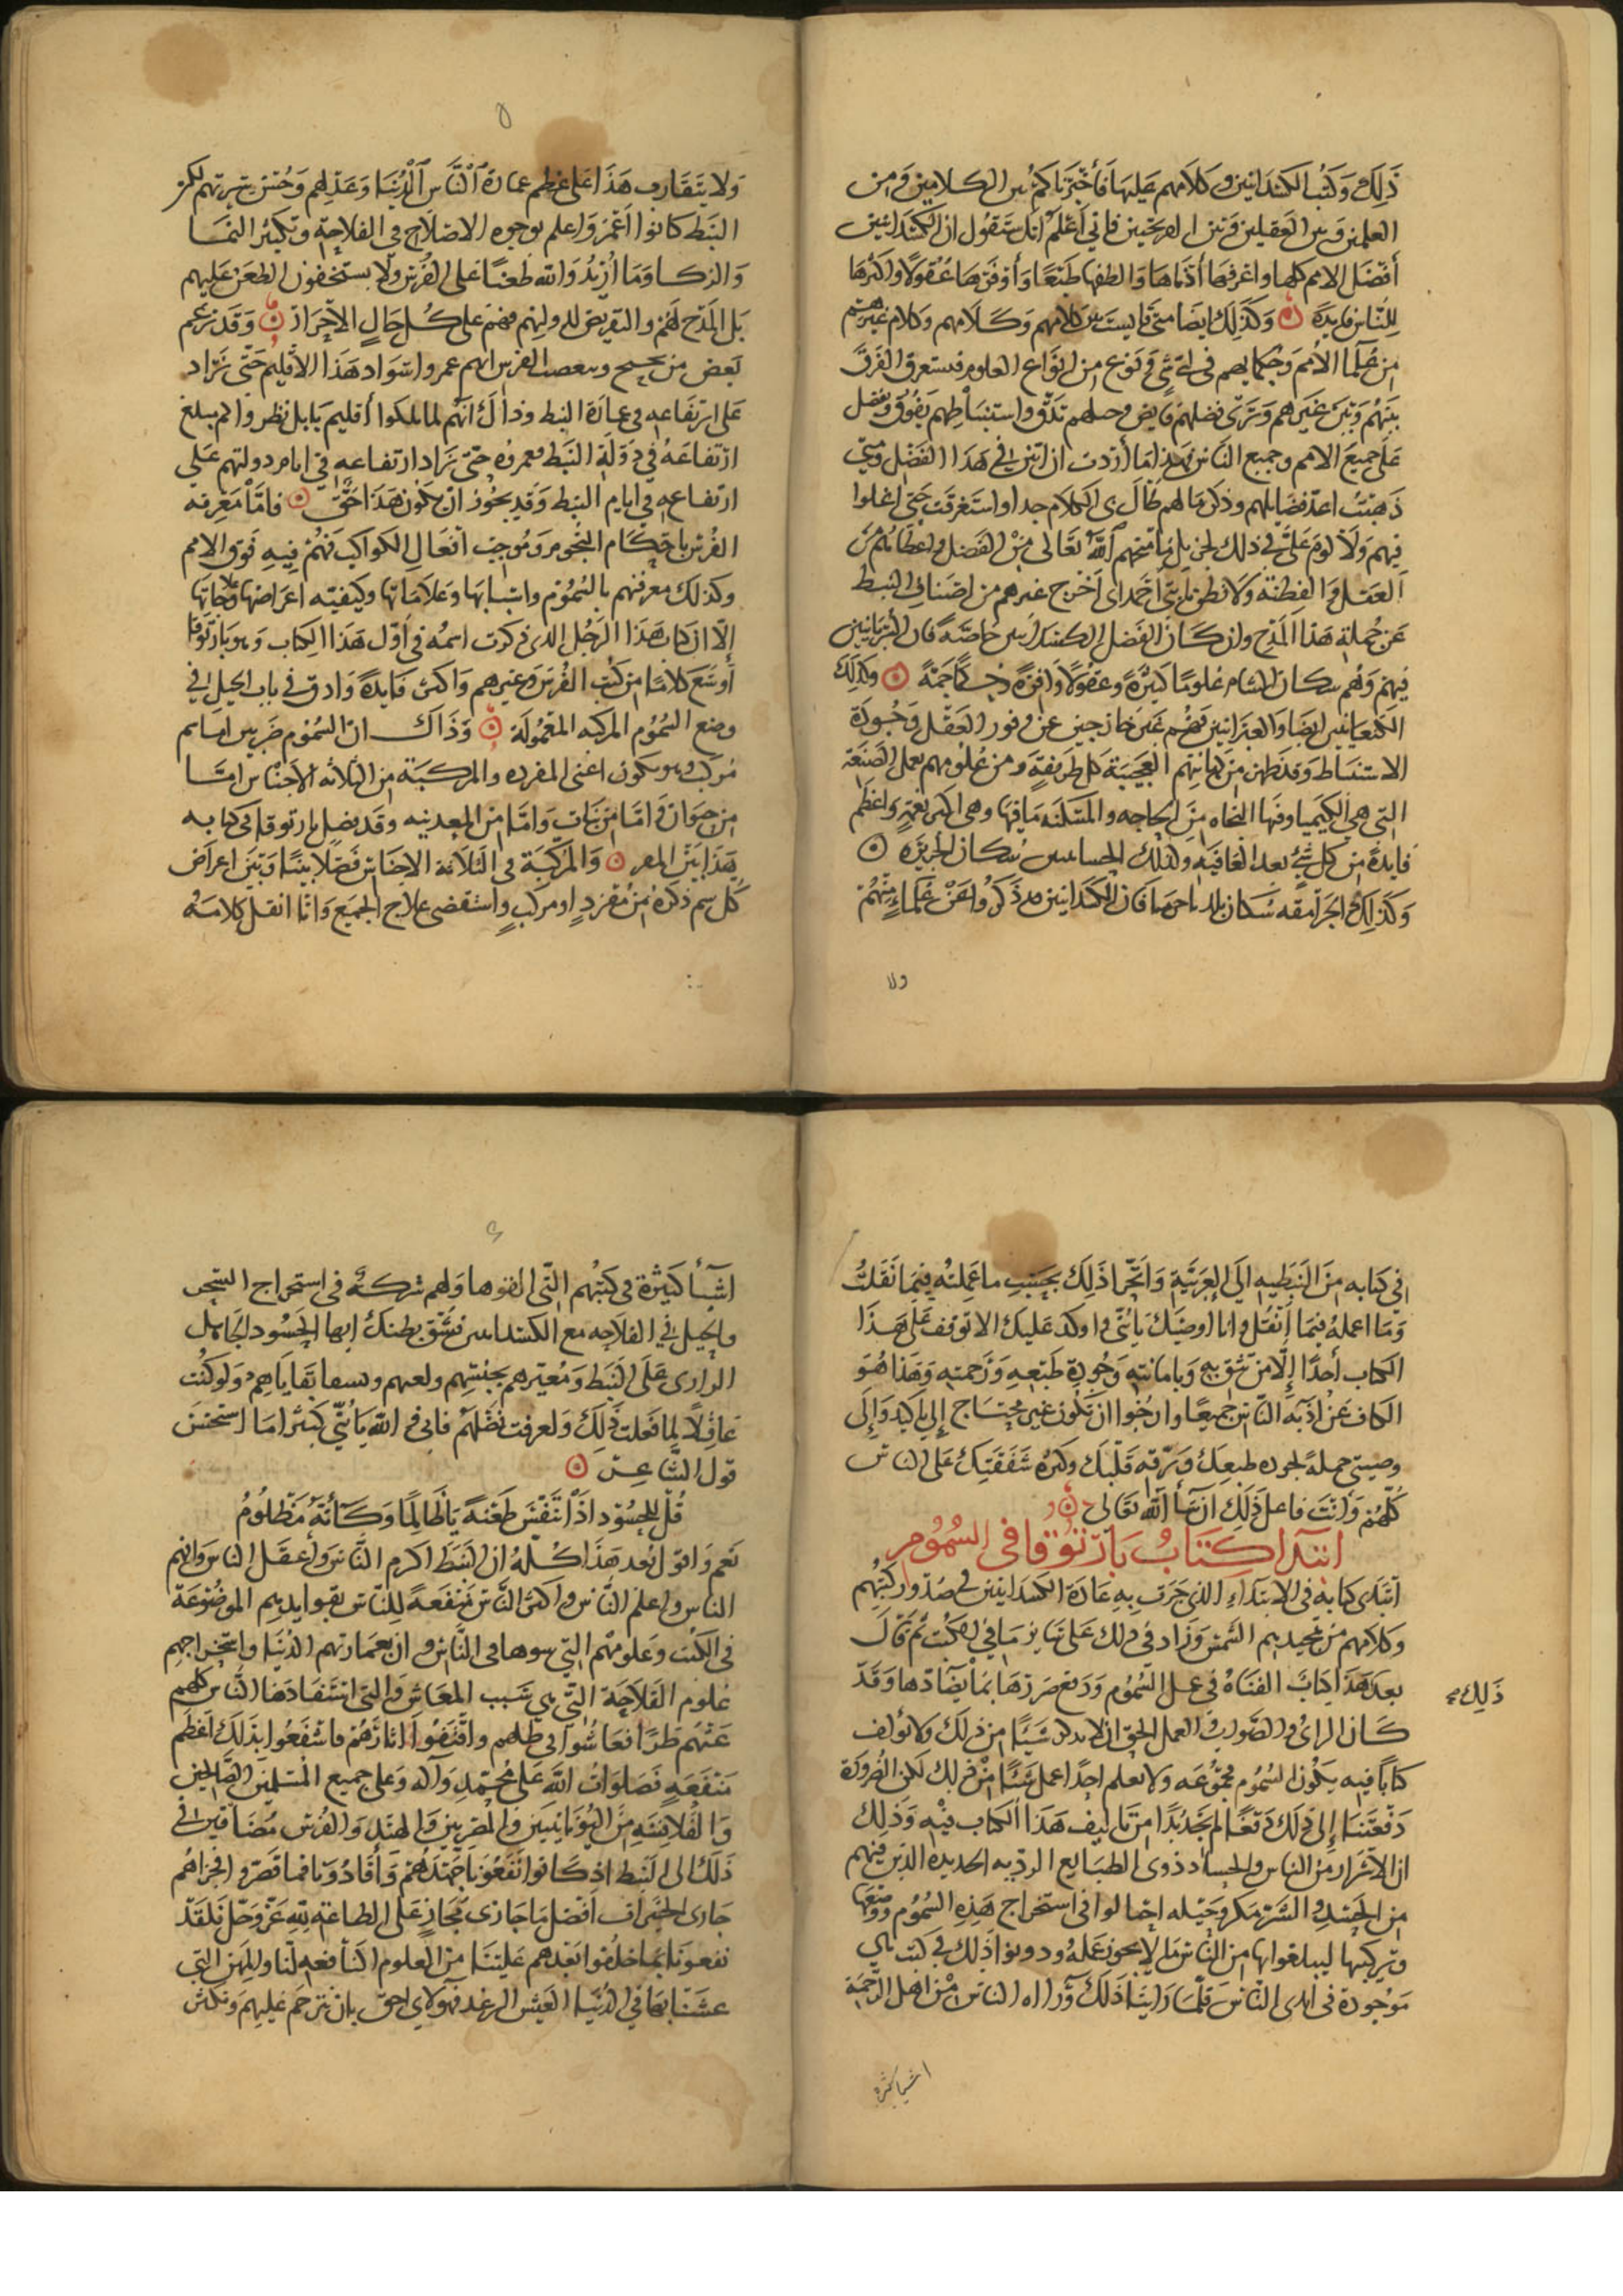 ذَلِكَ وَكتُب الكسْدَانيين وكلامهم عليها فأخبرنا كم بين الكلامين ومن
العلمين وبين العقلين وبين القريحتين فاني أعْلَمْ انك ستقول ان الكسْدَانيين
أفضَل الامم كلها واغرفها أذهانا والطفها طبْعًا وَأوفرها عُقُولًا واكثرها
للنَّاس فايدة وكذَلك ايضا متى قايست بين كلامهم وكَلَامهم وكلام غيرهم
من علما الأمم وحكمايهم في اي شي ونوع من انواع العلوم فستعرف الفَرق
بينهم وبَين غيرهم وترَى فضلهم
عَلَى جميع الامم وجميع النَّاس أردت ان ابين في هَذَا الفَضْل ومتى
ذهبتُ اعدّ فضايلهم وذكر مالهم طَالَ بي الكلام جدا واستغرقت حَتى اغلوا
فيهم وَلَا لوم عَلَيَّ في ذلك لجزيل ما منحهم ٱللَّهُ تعَالى مِنْ الفَضل واعطاهم من
العَقل وَالفِطنة وَلَا تظن يا بُنَيَّ احمد اني اخرج غيرهم من اصناف النبط
عَن جُملة هَذا المَدْح وان كَانَ الفَضل للكسدانيين خاصّة فان السُّريانيين
فيهم وَهُم سكان الشام عُلومًا كثيرة وعقُولًا وَافرة وحِكمًا جَمّة وكذَلكَ
الكنعانيين ايضًا وَالعبرانيين فهُم غَيرَ خارجين عَن وفور العَقْل وَجُودة
الاستنباط وَقد ظهر من كهانتهم العَجيبَة كل طريفةٍ ومن عُلُومهم بعمل الصَّنعَة
التي هي الكيميا وفيها النجاه مِنَ الحاجه والمسكنه مَا فيها وهي اكبر نعمةٍ واعظم
فايدة من كل شيٍ بعد العَافية وكذلك سُكان الجَزيره
وَكذلِكَ الجَرامقه سُكان بلد باجرما فان الكسدانيين قد ذَكَرُوا عَنْ عُلمَاءٍ منْهُمْ
ولا
ولا يتقَارب هَذَا عَلى عظم عمارة ٱلنَّاس ٱلدُّنْيَا وعَدْلهم وحُسْن سيرتهم لكن
النبَط كانوا اعْمَرُ وَاعلم بوجوه الاصْلَاح في الفلاحَة وتكثير النمَا
وَالزكا وَمَا أُريْدُ وَالله طَعْنًا عَلى الفُرس ولَا يستخفون الطعن عَليهم
بَل المَدْح لَهُمْ والتقريض لهم ولدولتهم فهُمْ عَلى كُل حَالٍ الأحْرَار وَقد زعم
بعض من يحسُب ويتعصب للفرس انهم عمروا سَوَاد هَذَا الاقليم حَتّى زَاد
عَلى ارتفَاعِه في عمارة النبط وذاكَ أنهُم لما ملكوا أقليم بَابل نظروا كم مبلغ
ارتفَاعَهُ في دَوْلَة النَبَط فعمروه حَتى زَاد ارتفاعه في ايام دولتهم عَلى
ارتفاعِه في ايام النبط وَقد يجُوز انْ يَكُون هَذَا حَقٌّ فامّا معرفه
الفُرس باحكَام النجُوم وَمُوجب افعَال الكواكب فهُمْ فيهِ فوق الامم
وكذلك معرفتهم بالسُمُوم واسبابها وعَلامَاتها وكيفيّه اعراضها وَعلاجَاتها
إلّا ان كتاب هَذَا الرجُل الذي ذكرت اسمُه في أوّل هَذَا الكِتاب وَهو بَارتوقا
أوسَع كَلامًا من كُتُب الفُرس وغَيرهم وَاكثر فايدةً وَادق في باب الحيل في
وضع السُمُوم المركبه المعمُولَة وَذَاكَ انّ السُمُوم ضَربين امَا سم
مُركب وَهو يكون اعنى المفرده والمركبَة من الثلاثه الأجناس امّا
من حيوان وَامّا من نَبات وَامّا من المعدنيه وقَد فصّل بارتوقا في كتابه
هَذا بَين المفرد وَالمركبَة في الثلاثة الاجناس فَصْلًا بينًا وَبيَن اعراض
كُل سم ذكره من مُفردٍ او مركبٍ واستقصَى علاج الجميع وَانا انقل كلامَهُ
في كتابه مِنَ النبطيه إلى العَربيَّة وَاتحرا ذَلك بحَسَب ما عَملته فيمَا نَقلتُ
وَمَا اعمله فيمَا أَنْقُل وانا اوصيكَ يا بُنَيَّ واوكد عَليك الا توقف عَلى هَذَا
الكتاب أحَدًا إلّا مَن تثق به وبامانته وَجُودة طَبعه وَرَحمته وَهَذا هُوَ
الكاف عَنْ أذيّة النّاس جميعًا وارجُوا ان تكون غير محتاج إلى تاكيد وَإلى
وصيتي جملةً لجوده طبعكَ وَرقه قلبكَ وكثره شَفقتك عَلى الناس
كُلّهُم وَأنتَ فاعل ذَلِكَ ان شَأ ٱللَّه تعَالى
ابتدا كِتَابُ بَارتوقا في السُمُوم
ابتَدى كتابه في الابتداء الذي جَرَت به عَادَة الكسدانيين في صُدور كتبهم
وكلامهم من تمجيدهم الشمس وَزَاد في ذلك عَلى سَاير مَا في الكتب ثم قَالَ
بعد هَذا كتاب الفنَاهُ في عمل السُمُوم وَدفع ضَررهَا بمَا يضادّها وَقدْ
ذَلِك
كَان الرأى والصَوابُ والعمل الحَق ان لا نذكر شَيئًا من ذلك ولا نؤلف
كتابًا فيه يكُون السُمُوم مجمُوعَه ولا نعلم احدًا عمل شَيئًا منْ ذلك لكن الضرورة
دَفعَتنَا إلى ذلك دَفعًا لم نجد بُدًا من تاليف هَذَا الكتاب فيه وَذلك
ان الاشرار من الناس والحسّاد ذوي الطبَايع الرديه الحديده الذين فيهم
من الحَسد والشر ومكر وحيله احتالوا في استخراج هَذِه السُمُوم ووضعها
وتركيبها ليبلغوا بها من النَّاس مَا لا يجُوز عَملُه ودونوا ذَلك في كتب هي
مَوْجُودة في ايدي النَّاس فلمّا رَاينَا ذَلكَ وَرَاه الناس مِنْ اهل الرَّحمَة
اشيا كثيرة
اشيَأ كثيرْة في كتبُهم التي الفوها وَلهم شركةٌ في استخراج السِّحر
والحيل في الفلاحه مع الكسدانيين فشُقّ بطنكَ ايها الحَسُود الجَاهل
الزاري عَلَى النَّبَط وَمُعيّرهم وَلَو كُنْت
عَاقِلًا لما فَعلت ذَلِكَ وَلعرفت فَضْلهُمْ فاني والله يَا بُنيّ كثيرًا مَا استحسن
قول الشّاعِر
قُلْ لِلحَسُوْدِ اذَا تَنَفَّسَ طَعْنةً يَا ظَالِمًا وَكَأَنَّهُ مَظْلُومُ
نَعم وَاقول بَعد هَذَا كُلّهُ ان النَبَط اكرم النَّاس وَأعقَل الناس وَانهم
الناس واعلم النَّاس واكثر النَّاس مَنفَعَة لِلنَّاس بفوايدهم الموضُوعَة
في الكُتب وَعلومهُم التي بثوها في النَّاس وان بعمَارتهم الدُنيَا واستخراجهم
عُلوم الفَلَاحَة التي هي سَبب المعَاش وَالتي استفَادَهَا النَّاس كلهم
عَنْهُم طُرًّا فعَاشُوا في ظلهم واقتفُوا اثارَهُم فانتفَعُوا بذَلكَ أعظَم
مَنفَعَةٍ فَصَلوَاتُ اللَّه عَلى مُحَمّدٍ وَآله وعَلى جميع المُسْلمين الصَّالحين
وَالفَلاسِفَه مِنَ اليُونَانيين وَالمصريين وَالهند وَالفُرس مُضَافين في
ذَلك الى النَبط اذ كَانوا نَفعُونَا جَهْدَهُمْ وَأفادُونا فما قَصّروا فجزاهُم
جَازى الخيرات أفضَل مَا جَازى مجَازٍ عَلى الطاعَة لله عَزّ وَجَلّ فلقد
نفعونَا بمَا خلفُوا بَعْدهم عَلينَا مِنَ العلوم النَّافعه لنا وللمهن التي
عشنَا بهَا في الدُنْيَا العَيْش الرغد فهَولاي احق بان نترحم عَليهم ونكثر